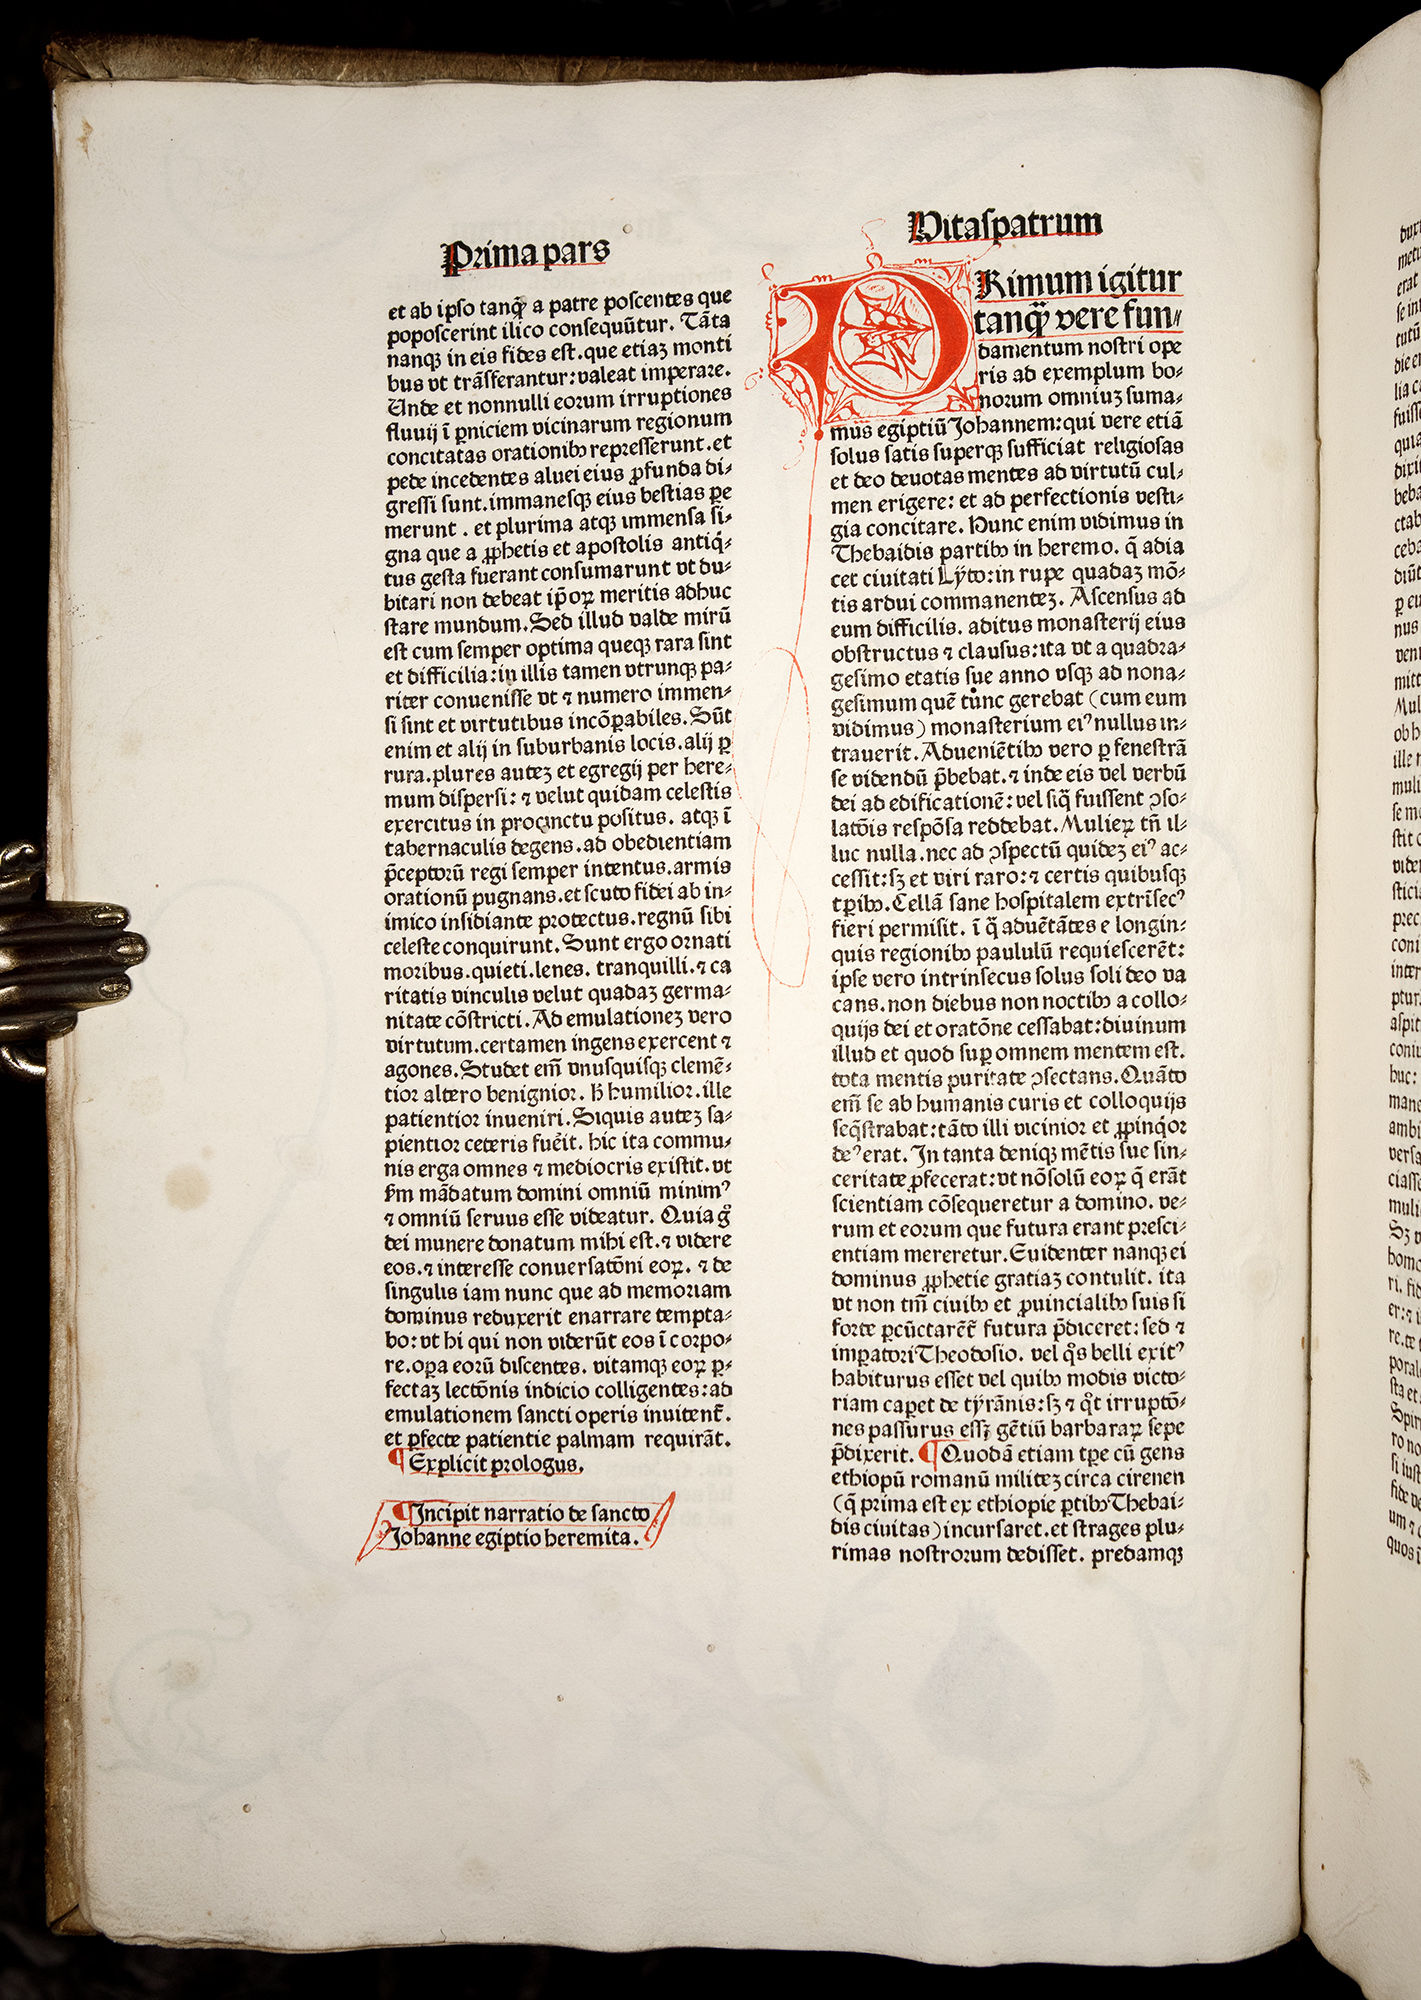 Prima pars
et ab ipso tanq̃ a patre poscentes que
poposcerint ilico consequũtur. Tãta
nanqꝫ in eis fides est. que etiaꝫ monti
bus vt trãsferantur: valeat imperare.
Unde et nonnulli eorum irruptiones
fluuij ĩ ꝑniciem vicinarum regionum
concitatas orationibꝰ represserunt. et
pede incedentes aluei eius ꝓfunda di⸗
gressi sunt. immanesqꝫ eius bestias ꝑe
merunt . et plurima atqꝫ immensa si⸗
gna que a ꝓphetis et apostolis antiq̇⸗
tus gesta fuerant consumarunt vt du⸗
bitari non debeat ip̃oꝝ meritis adhuc
stare mundum. Sed illud valde mirũ
est cum semper optima queqꝫ rara sint
et difficilia: in illis tamen vtrunqꝫ pa⸗
riter conuenisse vt ⁊ numero immen⸗
si sint et virtutibus incõꝑabiles. Sũt
enim et alij in suburbanis locis. alij ꝑ
rura. plures auteꝫ et egregij per here⸗
mum dispersi: ⁊ velut quidam celestis
exercitus in procinctu positus. atqꝫ ĩ
tabernaculis degens. ad obedientiam
p̃ceptorũ regi semper intentus. armis
orationũ pugnans. et scuto fidei ab in⸗
imico insidiante protectus. regnũ sibi
celeste conquirunt. Sunt ergo ornati
moribus. quieti. lenes. tranquilli. ⁊ ca
ritatis vinculis velut quadaꝫ germa⸗
nitate cõstricti. Ad emulationeꝫ vero
virtutum. certamen ingens exercent ⁊
agones. Studet em̃ vnusquisqꝫ clemẽ⸗
tior altero benignior. h̃ humilior. ille
patientior inueniri. Siquis auteꝫ sa⸗
pientior ceteris fuẽit. hic ita commu⸗
nis erga omnes ⁊ mediocris existit. vt
ẜm mãdatum domini omniũ minimꝰ
⁊ omniũ seruus esse videatur. Quia g̊
dei munere donatum mihi est. ⁊ videre
eos. ⁊ interesse conuersatõni eoꝝ. ⁊ de
singulis iam nunc que ad memoriam
dominus reduxerit enarrare tempta⸗
bo: vt hi qui non viderũt eos ĩ corpo⸗
re. oꝑa eorũ discentes. vitamqꝫ eoꝝ ꝑ⸗
fectaꝫ lectõnis indicio colligentes: ad
emulationem sancti operis inuitent᷑.
et ꝑfecte patientie palmam requirãt.
¶ Explicit prologus.
¶ Incipit narratio de sancto
Johanne egiptio heremita.
Vitaspatrum
PRimum igitur
tanq̃ vere fun⸗
damentum nostri ope
ris ad exemplum bo⸗
norum omniuꝫ suma⸗
mus egiptiũ Johannem: qui vere etiã
solus satis superqꝫ sufficiat religiosas
et deo deuotas mentes ad virtutũ cul⸗
men erigere: et ad perfectionis vesti⸗
gia concitare. Nunc enim vidimus in
Thebaidis partibꝰ in heremo. q̃ adia
cet ciuitati Lÿto: in rupe quadaꝫ mõ⸗
tis ardui commanenteꝫ. Ascensus ad
eum difficilis. aditus monasterij eius
obstructus ⁊ clausus: ita vt a quadra⸗
gesimo etatis sue anno vsqꝫ ad nona⸗
gesimum quẽ tunc gerebat (cum eum
vidimus) monasterium eiꝰ nullus in⸗
trauerit. Adueniẽtibꝰ vero ꝑ fenestrã
se videndũ p̃bebat. ⁊ inde eis vel verbũ
dei ad edificationẽ: vel siq̃ fuissent ꝯso⸗
latõis respõsa reddebat. Mulieꝝ tñ il⸗
luc nulla. nec ad ꝯspectũ quideꝫ eiꝰ ac⸗
cessit: sꝫ et viri raro: ⁊ certis quibusqꝫ
tꝑibꝰ. Cellã sane hospitalem extrĩsecꝰ
fieri permisit. ĩ q̃ aduẽtãtes e longin⸗
quis regionibꝰ paululũ requiescerẽt:
ipse vero intrinsecus solus soli deo va
cans. non diebus non noctibꝰ a collo⸗
quijs dei et oratõne cessabat: diuinum
illud et quod suꝑ omnem mentem est.
tota mentis puritate ꝯsectans. Quãto
em̃ se ab humanis curis et colloquijs
seq̃strabat: tãto illi vicinior et ꝓpinq̇or
deꝰ erat. In tanta deniqꝫ mẽtis sue sin⸗
ceritate ꝓfecerat: vt nõsolũ eoꝝ q̃ erãt
scientiam cõsequeretur a domino. ve⸗
rum et eorum que futura erant presci⸗
entiam mereretur. Euidenter nanqꝫ ei
dominus ꝓphetie gratiaꝫ contulit. ita
vt non tm̃ ciuibꝰ et ꝓuincialibꝰ suis si
forte ꝑcũctarẽt᷑ futura p̃diceret: sed ⁊
imꝑatori Theodosio. vel q̊s belli exitꝰ
habiturus esset vel quibꝰ modis victo⸗
riam caꝑet de tÿrãnis: sꝫ ⁊ q̊t irruptõ⸗
nes passurus essꝫ gẽtiũ barbaraꝝ sepe
p̃dixerit. ¶ Quodã etiam tꝑe cũ gens
ethiopũ romanũ militeꝫ circa cirenen
(q̃ prima est ex ethiopie ꝑtibꝰ Thebai⸗
dis ciuitas) incursaret. et strages plu⸗
rimas nostrorum dedisset. predamqꝫ